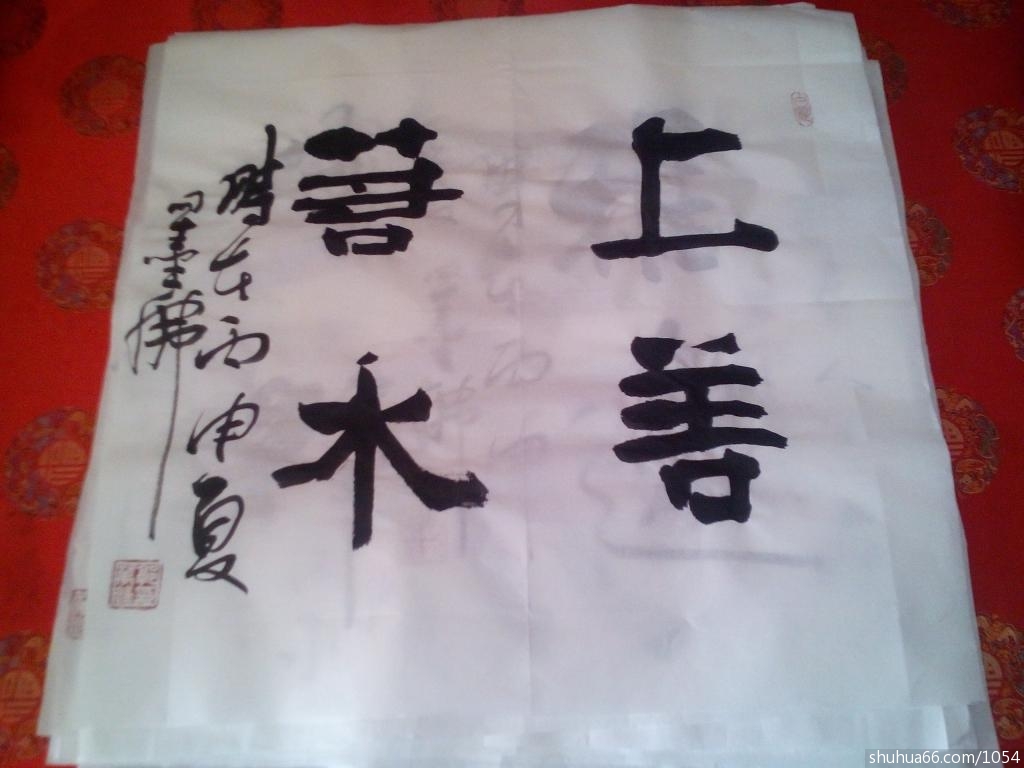 上善
若水
時在丙申夏
墨佛
shuhua66.com/1054